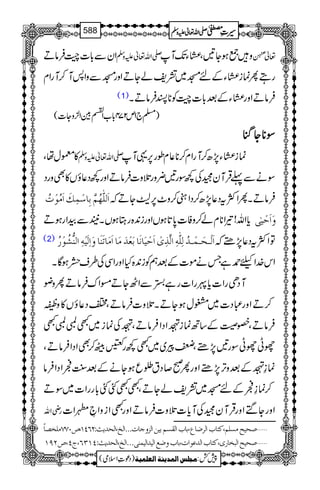 588 سیرتِ مصطفیٰ صلی اللہ تعالیٰ علیہ وسلم
تعالیٰ عنہن وہیں جمع ہو جاتیں، عشاء تک آپ صلی اللہ تعالیٰ علیہ وسلم ان سے بات چیت فرماتے
رہتے پھر نماز عشاء کے لئے مسجد میں تشریف لے جاتے اور مسجد سے واپس آ کر آرام
فرماتے اور عشاء کے بعد بات چیت کو ناپسند فرماتے۔ (1)
سونا جاگنا
نماز عشاء پڑھ کر آرام کرنا عام طور پر یہی آپ صلی اللہ تعالیٰ علیہ وسلم کا معمول تھا،
سونے سے پہلے قرآن مجید کی کچھ سورتیں ضرور تلاوت فرماتے اور کچھ دعاؤں کا بھی ورد
فرماتے۔ پھر اکثر یہ دعا پڑھ کر داہنی کروٹ پر لیٹ جاتے کہ اَللّٰهُمَّ بِاسْمِكَ اَمُوْتُ
وَاَحْيٰى یا اللہ! تیرا نام لے کر وفات پاتا ہوں اور زندہ رہتا ہوں۔ نیند سے بیدار ہوتے
تو اکثر یہ دعا پڑھتے کہ اَلْحَمْدُ لِلّٰهِ الَّذِيْ اَحْيَانَا بَعْدَ مَا اَمَاتَنَا وَاِلَيْهِ النُّشُوْرُ (2)
اس خدا کیلئے حمد ہے جس نے موت کے بعد ہم کو زندہ کیا اور اسی کی طرف حشر ہو گا۔
آدھی رات یا پہر رات رہے بستر سے اٹھ جاتے مسواک فرماتے پھر وضو
کرتے اور عبادت میں مشغول ہو جاتے۔ تلاوت فرماتے، مختلف دعاؤں کا وظیفہ
فرماتے، خصوصیت کے ساتھ نماز تہجد ادا فرماتے، تہجد کی نماز میں کبھی لمبی لمبی کبھی
چھوٹی چھوٹی سورتیں پڑھتے، ضعفِ پیری میں کبھی کچھ رکعتیں بیٹھ کر بھی ادا فرماتے،
نماز تہجد کے بعد وتر پڑھتے اور پھر صبح صادق طلوع ہو جانے کے بعد سنت فجر ادا فرما
کر نماز فجر کے لئے مسجد میں تشریف لے جاتے، کبھی کبھی کئی کئی بار رات میں سوتے
اور جاگتے اور قرآن مجید کی آیات تلاوت فرماتے اور کبھی ازواج مطہرات رضی اللہ
صحیح مسلم، کتاب الرضاع، باب القسم بین الزوجات...الخ، الحدیث:۱۴۶۲، ص۷۷۰ ملخصاً
صحیح البخاری، کتاب الدعوات، باب وضع الید الیمنی...الخ، الحدیث:۶۳۱۴، ج۴، ص۱۹۲
پیش کش: مجلس المدینة العلمیة (دعوتِ اسلامی)